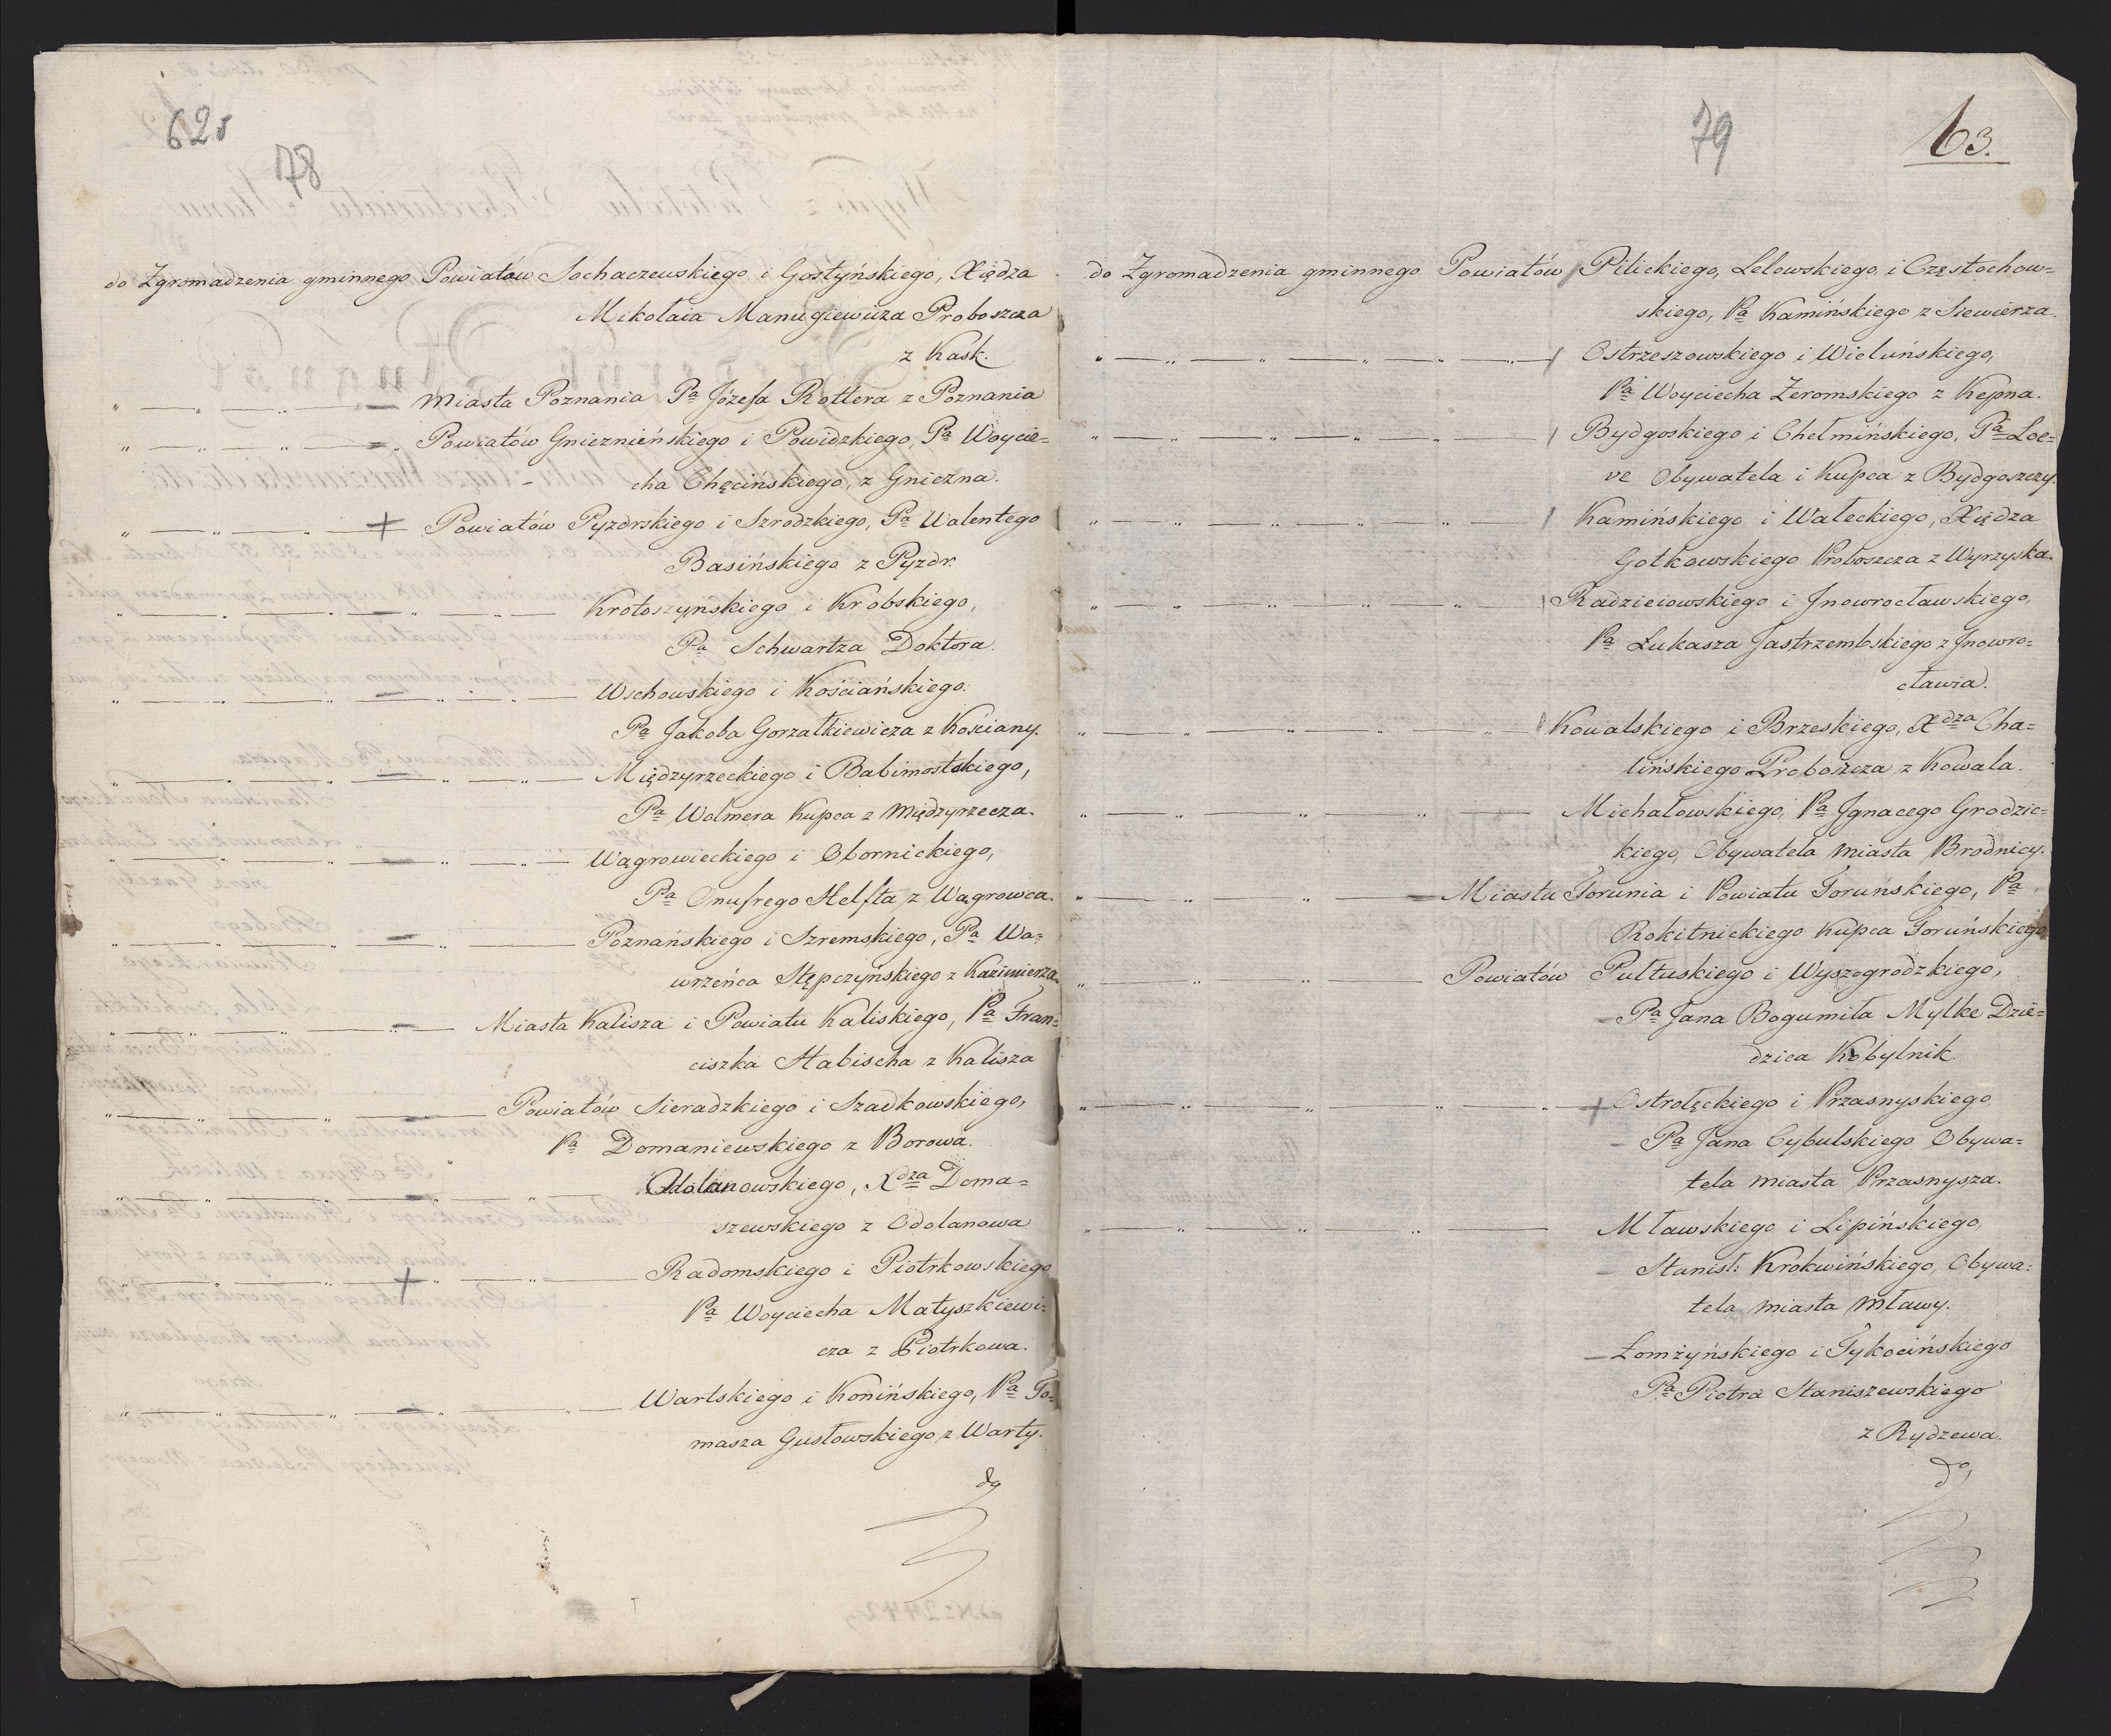 62v
78
do Zgromadzenia gminnego Powiatów Sochaczewskiego i Gostyńskiego, Xiędza
Mikołaia Manugiewicza Proboszcza
z Kask.
" — " — " — Miasta Poznania Pa Józefa Rottera z Poznania
" — " — " — Powiatów Gnieznieńskiego i Powidzkiego, Pa Woycie=
cha Chęcińskiego, z Gniezna.
" — " — " — + Powiatów Pyzdrskiego i Szrodzkiego, Pa Walentego
Basińskiego z Pyzdr.
" — " — " — Krotoszyńskiego i Krobskiego,
Pa Schwartza Doktora.
" — " — " — Wschowskiego i Kościańskiego.
Pa Jakoba Gorzałkiewicza z Kościany.
" — " — " — Międzyrzeckiego i Babimostskiego,
Pa Wolmera Kupca z Międzyrzecza.
" — " — " — Wągrowieckiego i Obornickiego,
Pa Onufrego Helfta z Wągrowca.
" — " — " — Poznańskiego i Szremskiego, Pa Wa=
wrzeńca Stępczyńskiego z Kazimierza.
" — " — " — Miasta Kalisza i Powiatu Kaliskiego, Pa Fran=
ciszka Stabischa z Kalisza
" — " — " — Powiatów Sieradzkiego i Szadkowskiego,
Pa Domaniewskiego z Borowa.
" — " — " — Odolanowskiego, Xdza Doma=
szewskiego z Odolanowa
" — " — " — + Radomskiego i Piotrkowskiego
Pa Woyciecha Matyszkiewi=
cza z Piotrkowa.
" — " — " — Wartskiego i Konińskiego, Pa To=
masza Gustowskiego z Warty.
79
63.
do Zgromadzenia gminnego Powiatów Pilickiego, Lelowskiego i Częstochow=
skiego, Pa Kamińskiego z Siewierza.
" — " — " — Ostrzeszowskiego i Wieluńskiego,
Pa Woyciecha Żeromskiego z Kępna.
" — " — " — Bydgoskiego i Chełmińskiego, Pa Loe=
ve Obywatela i Kupca z Bydgoszczy.
" — " — " — Kamińskiego i Wałeckiego, Xiędza
Gotkowskiego Proboszcza z Wyrzyska.
" — " — " — Radzieiowskiego i Jnowrocławskiego,
Pa Łukasza Jastrzembskiego z Jnowro=
cławia.
" — " — " — Kowalskiego i Brzeskiego, Xdza Cha=
lińskiego Proboszcza z Kowala.
" — " — " — Michałowskiego, Pa Jgnacego Grodzic=
kiego, Obywatela miasta Brodnicy.
" — " — " — Miasta Torunia i Powiatu Toruńskiego, Pa
Rokitnickiego Kupca Toruńskiego
" — " — " — Powiatów Pułtuskiego i Wyszogrodzkiego,
Pa Jana Bogumiła Mylke Dzie=
dzica Kobylnik.
" — " — " — + Ostrołęckiego i Przasnyskiego
Pa Jana Cybulskiego Obywa=
tela miasta Przasnysza.
" — " — " — Mławskiego i Lipińskiego,
Stanisł: Krokwińskiego, Obywa=
tela miasta Mławy.
Łomżyńskiego i Tykocińskiego
Pa Piotra Staniszewskiego
z Rydzewa.